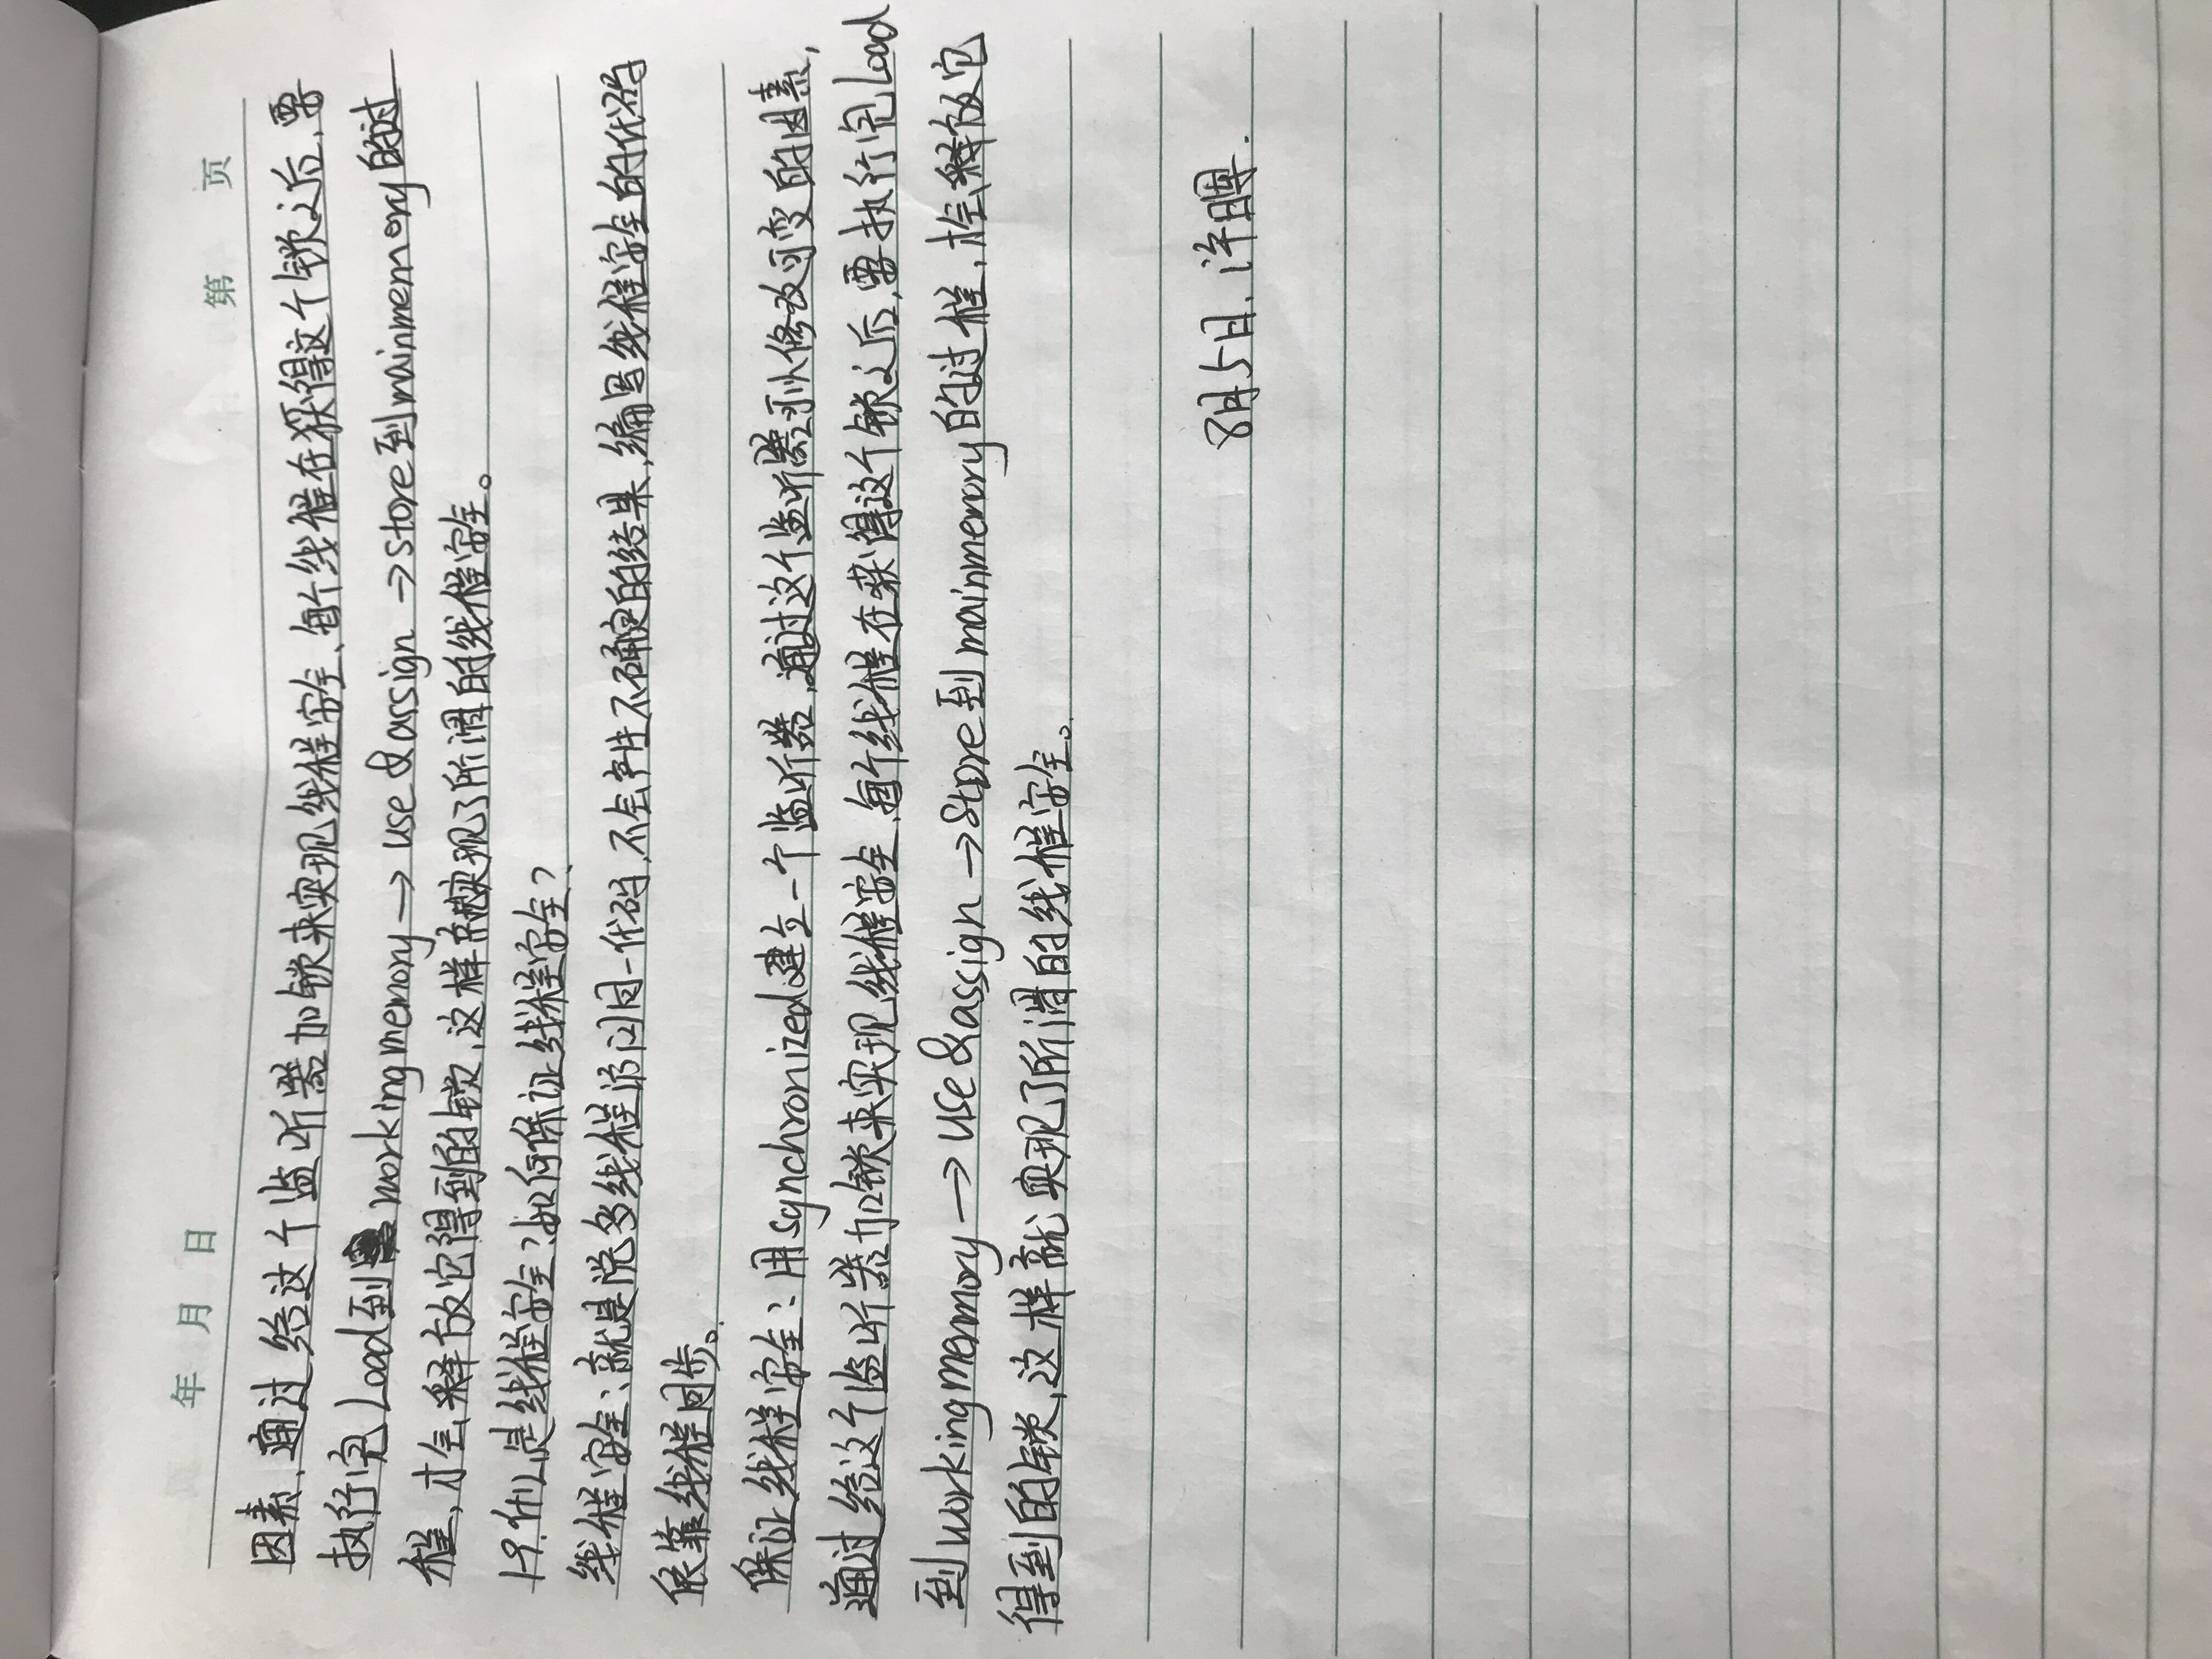 年 月 日
第 页
因素,通过给这个监听器加锁来实现线程安全、每个线程在获得这个锁之后,要
执行完Load到 working memory → use & assign → store到mainmemory的过
程,才会释放它得到的锁,这样就实现了所谓的线程安全。
19.什么是线程安全?如何保证线程安全?
线程安全:就是说多线程访问同一代码,不会产生不确定的结果,编写线程安全的代码
依靠线程同步。
保证线程安全:用synchronized建立一个监听器,通过这个监听器可以修改可变的因素,
通过给这个监听器加锁来实现线程安全,每个线程在获得这个锁之后,要执行完Load
到working menmory → use & assign → Store到mainmemory的过程,才会释放它
得到的锁,这样就实现了所谓的线程安全。
8月5日. 许